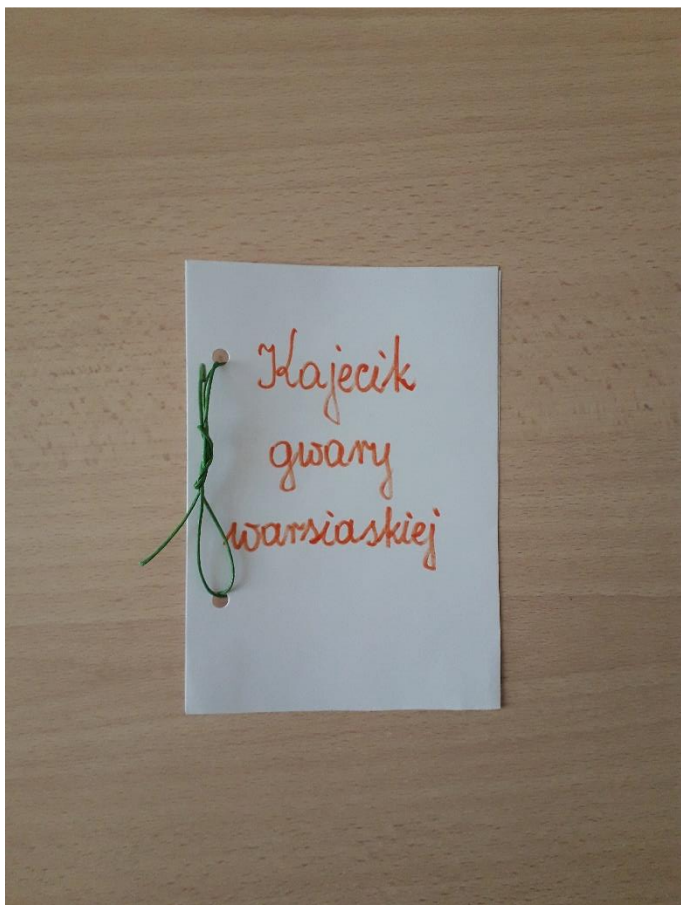 Kajecik
gwary
warsiaskiej